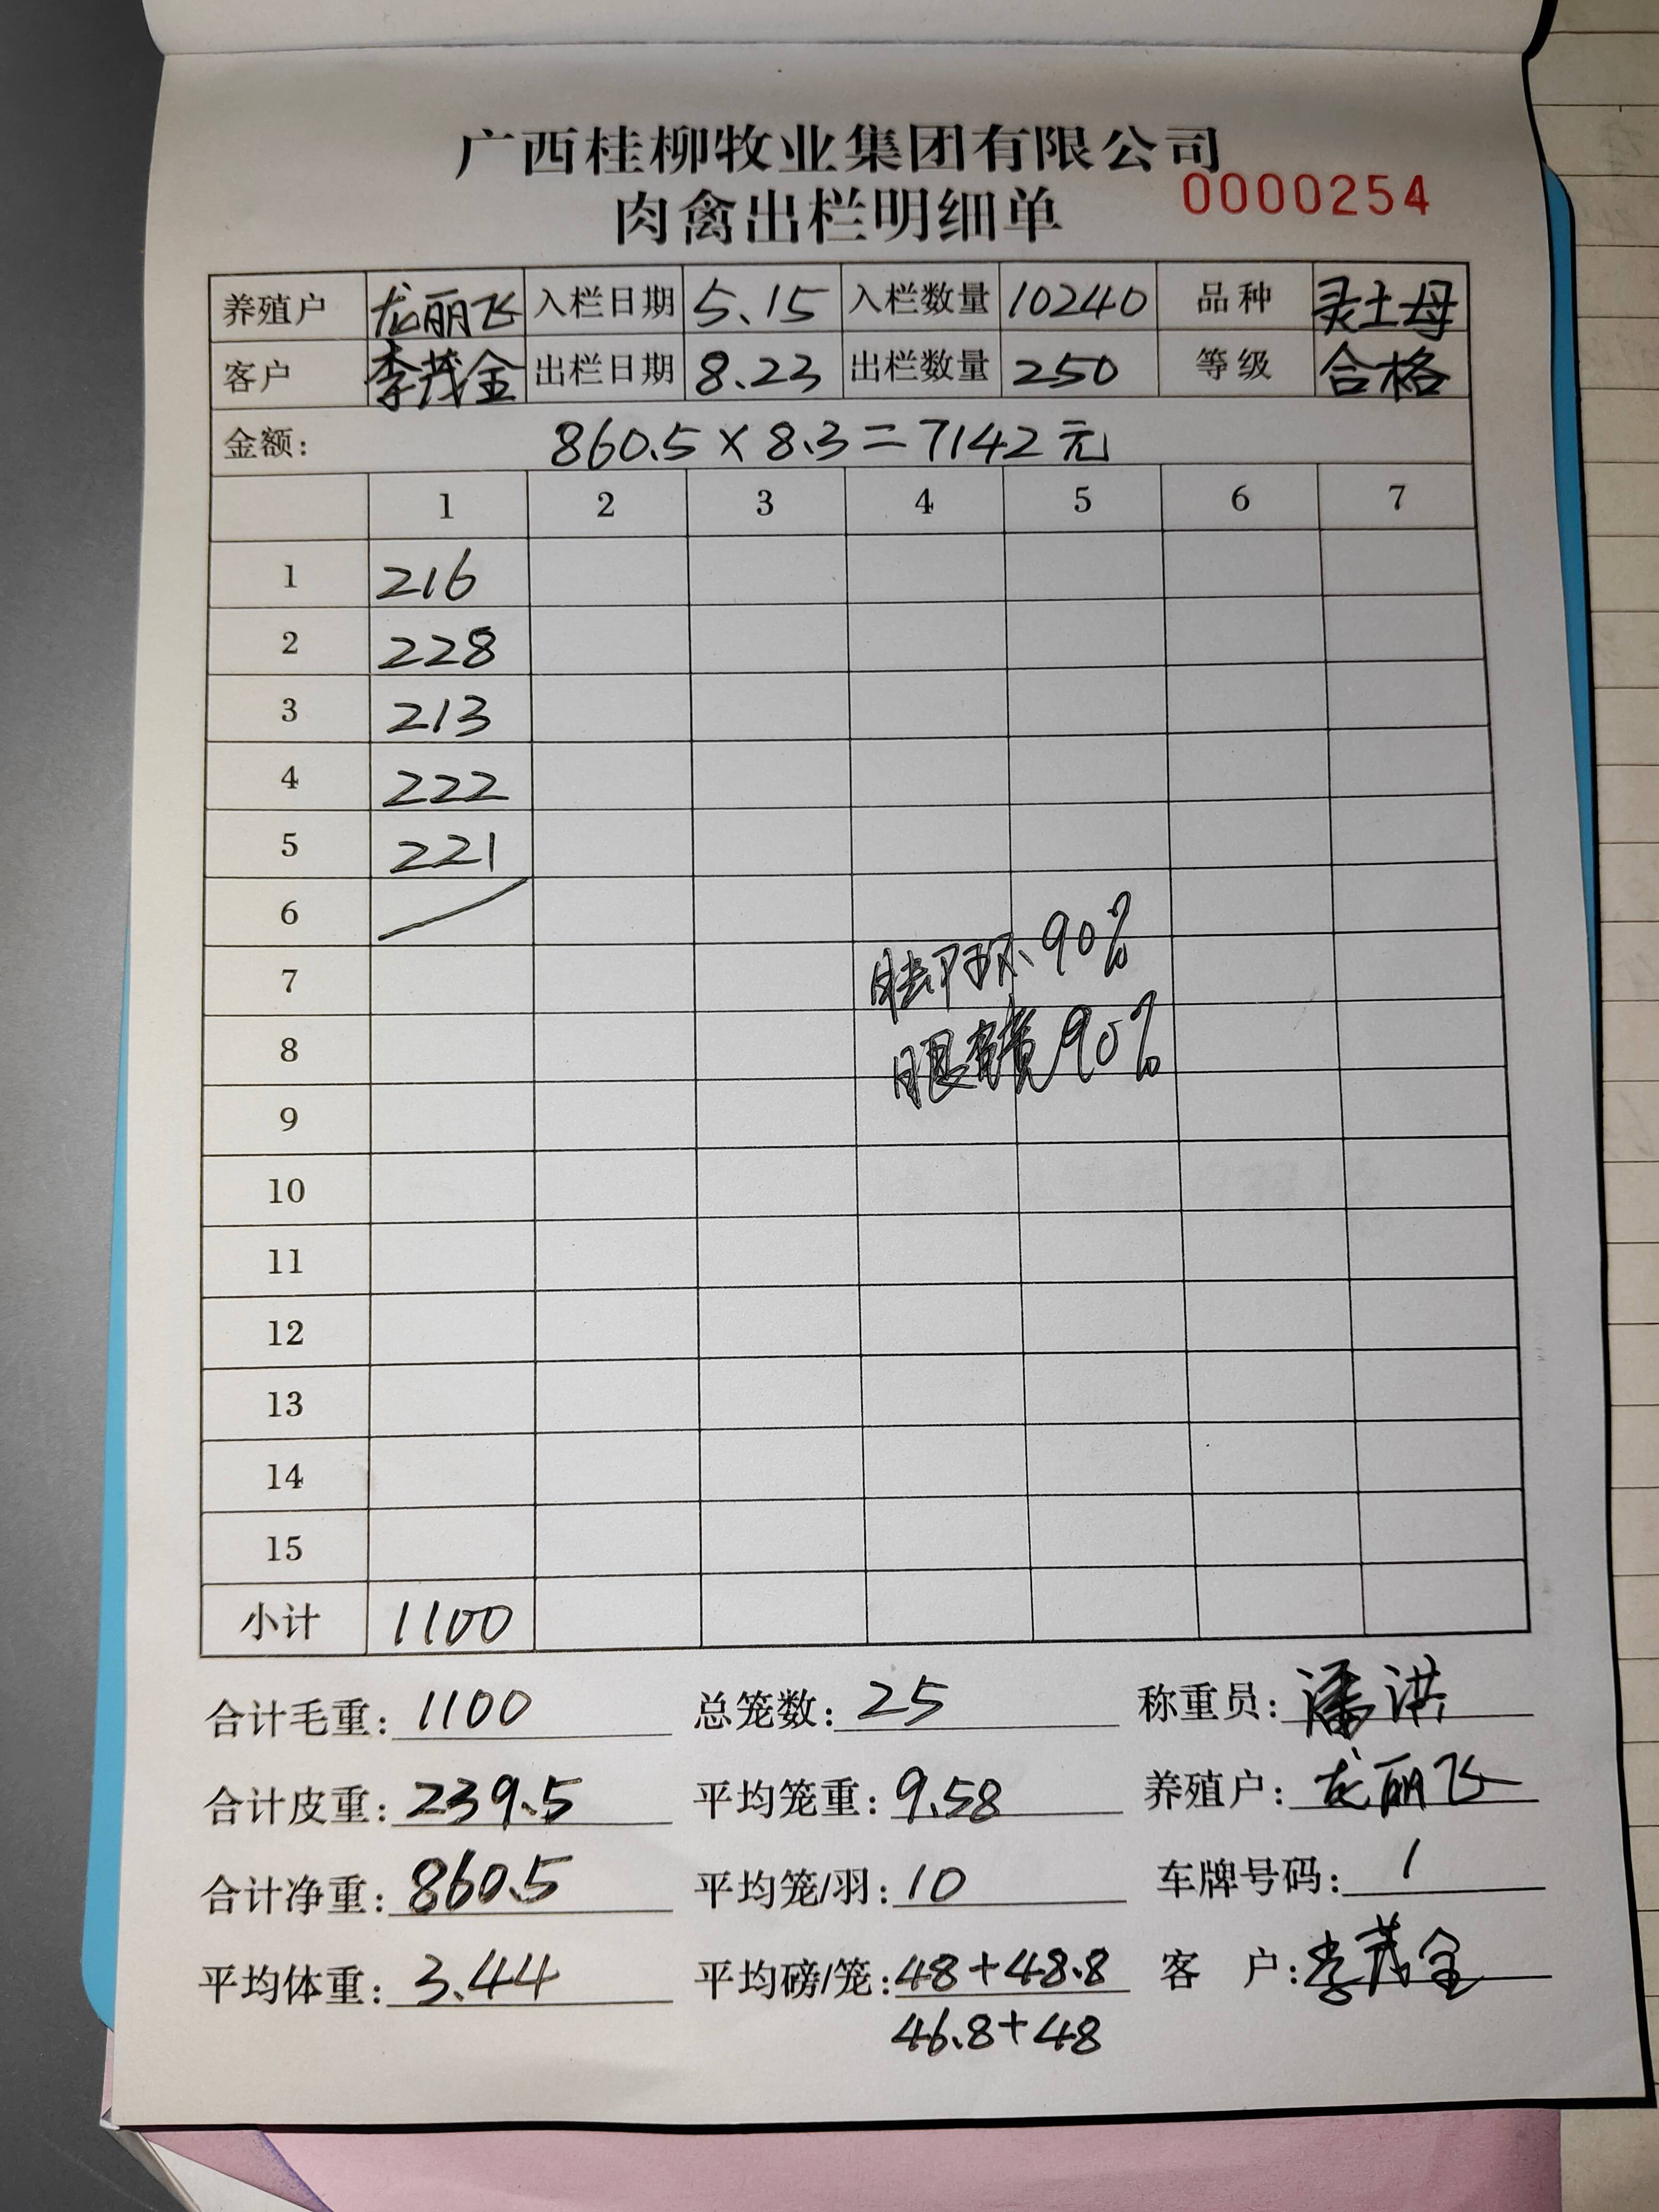 广西桂柳牧业集团有限公司
肉禽出栏明细单 0000254
养殖户 龙丽飞 入栏日期 5.15 入栏数量 10240 品种 灵土母
客户 李茂金 出栏日期 8.23 出栏数量 250 等级 合格
金额: 860.5×8.3=7142元
1 2 3 4 5 6 7
1 216
2 228
3 213
4 222
5 221
6
7 脚环90%
8 眼镜90%
9
10
11
12
13
14
15
小计 1100
合计毛重: 1100 总笼数: 25 称重员: 潘洪
合计皮重: 239.5 平均笼重: 9.58 养殖户: 龙丽飞
合计净重: 860.5 平均笼/羽: 10 车牌号码: /
平均体重: 3.44 平均磅/笼: 48+48.8 客户: 李茂金
46.8+48